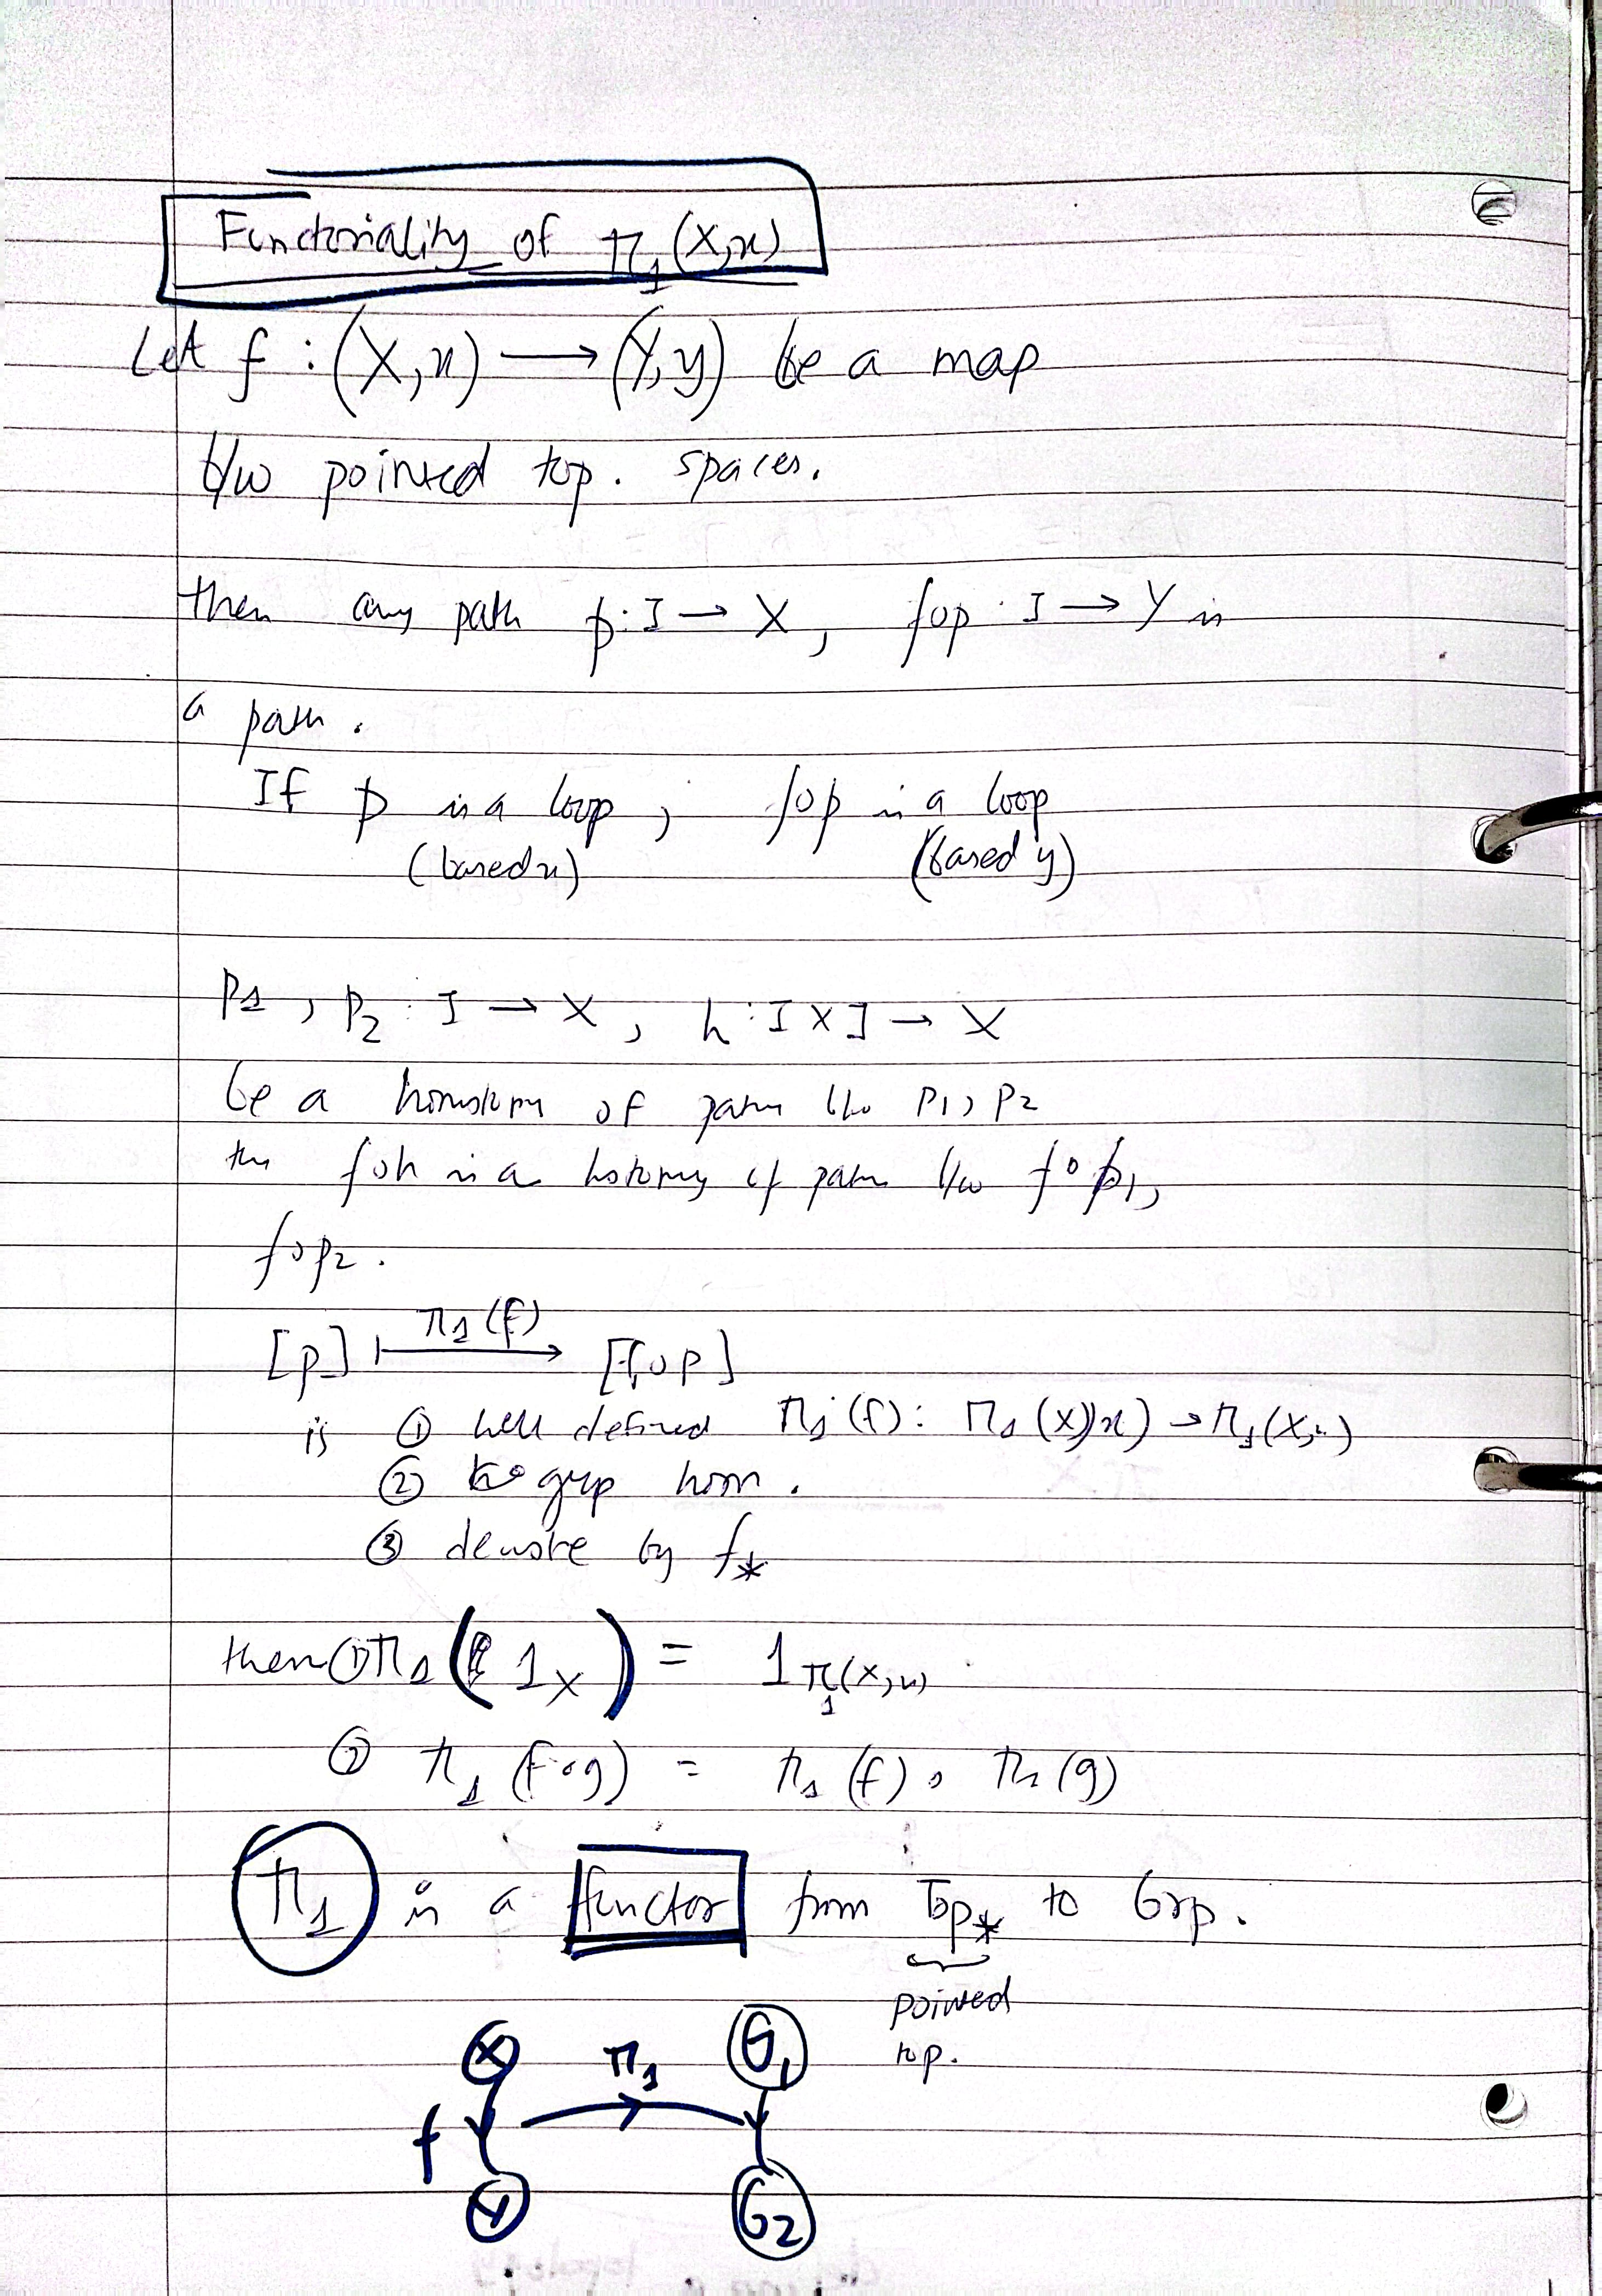 Functoriality of π₁(X,x)
Let f : (X,x) ⟶ (Y,y) be a map
b/w pointed top. spaces.
then any path p: I → X, f∘p : I → Y is
a path.
If p is a loop, f∘p is a loop
(based x) (based y)
p₁, p₂ : I → X, h : I × I → X
be a homotopy of paths b/w p₁, p₂
the f∘h is a hotopy of paths b/w f∘p₁,
f∘p₂.
π₁(f)
[p] ⟼ [f∘p]
is ① well defined π₁(f) : π₁(X,x) → π₁(X,x)
② grp hom.
③ denote by f_*
then ① π₁(1_X) = 1_π₁(X,x)
② π₁(f∘g) = π₁(f) ∘ π₁(g)
π₁ is a functor from Top_* to Grp.
pointed
top.
X π₁ G₁
f
Y G₂